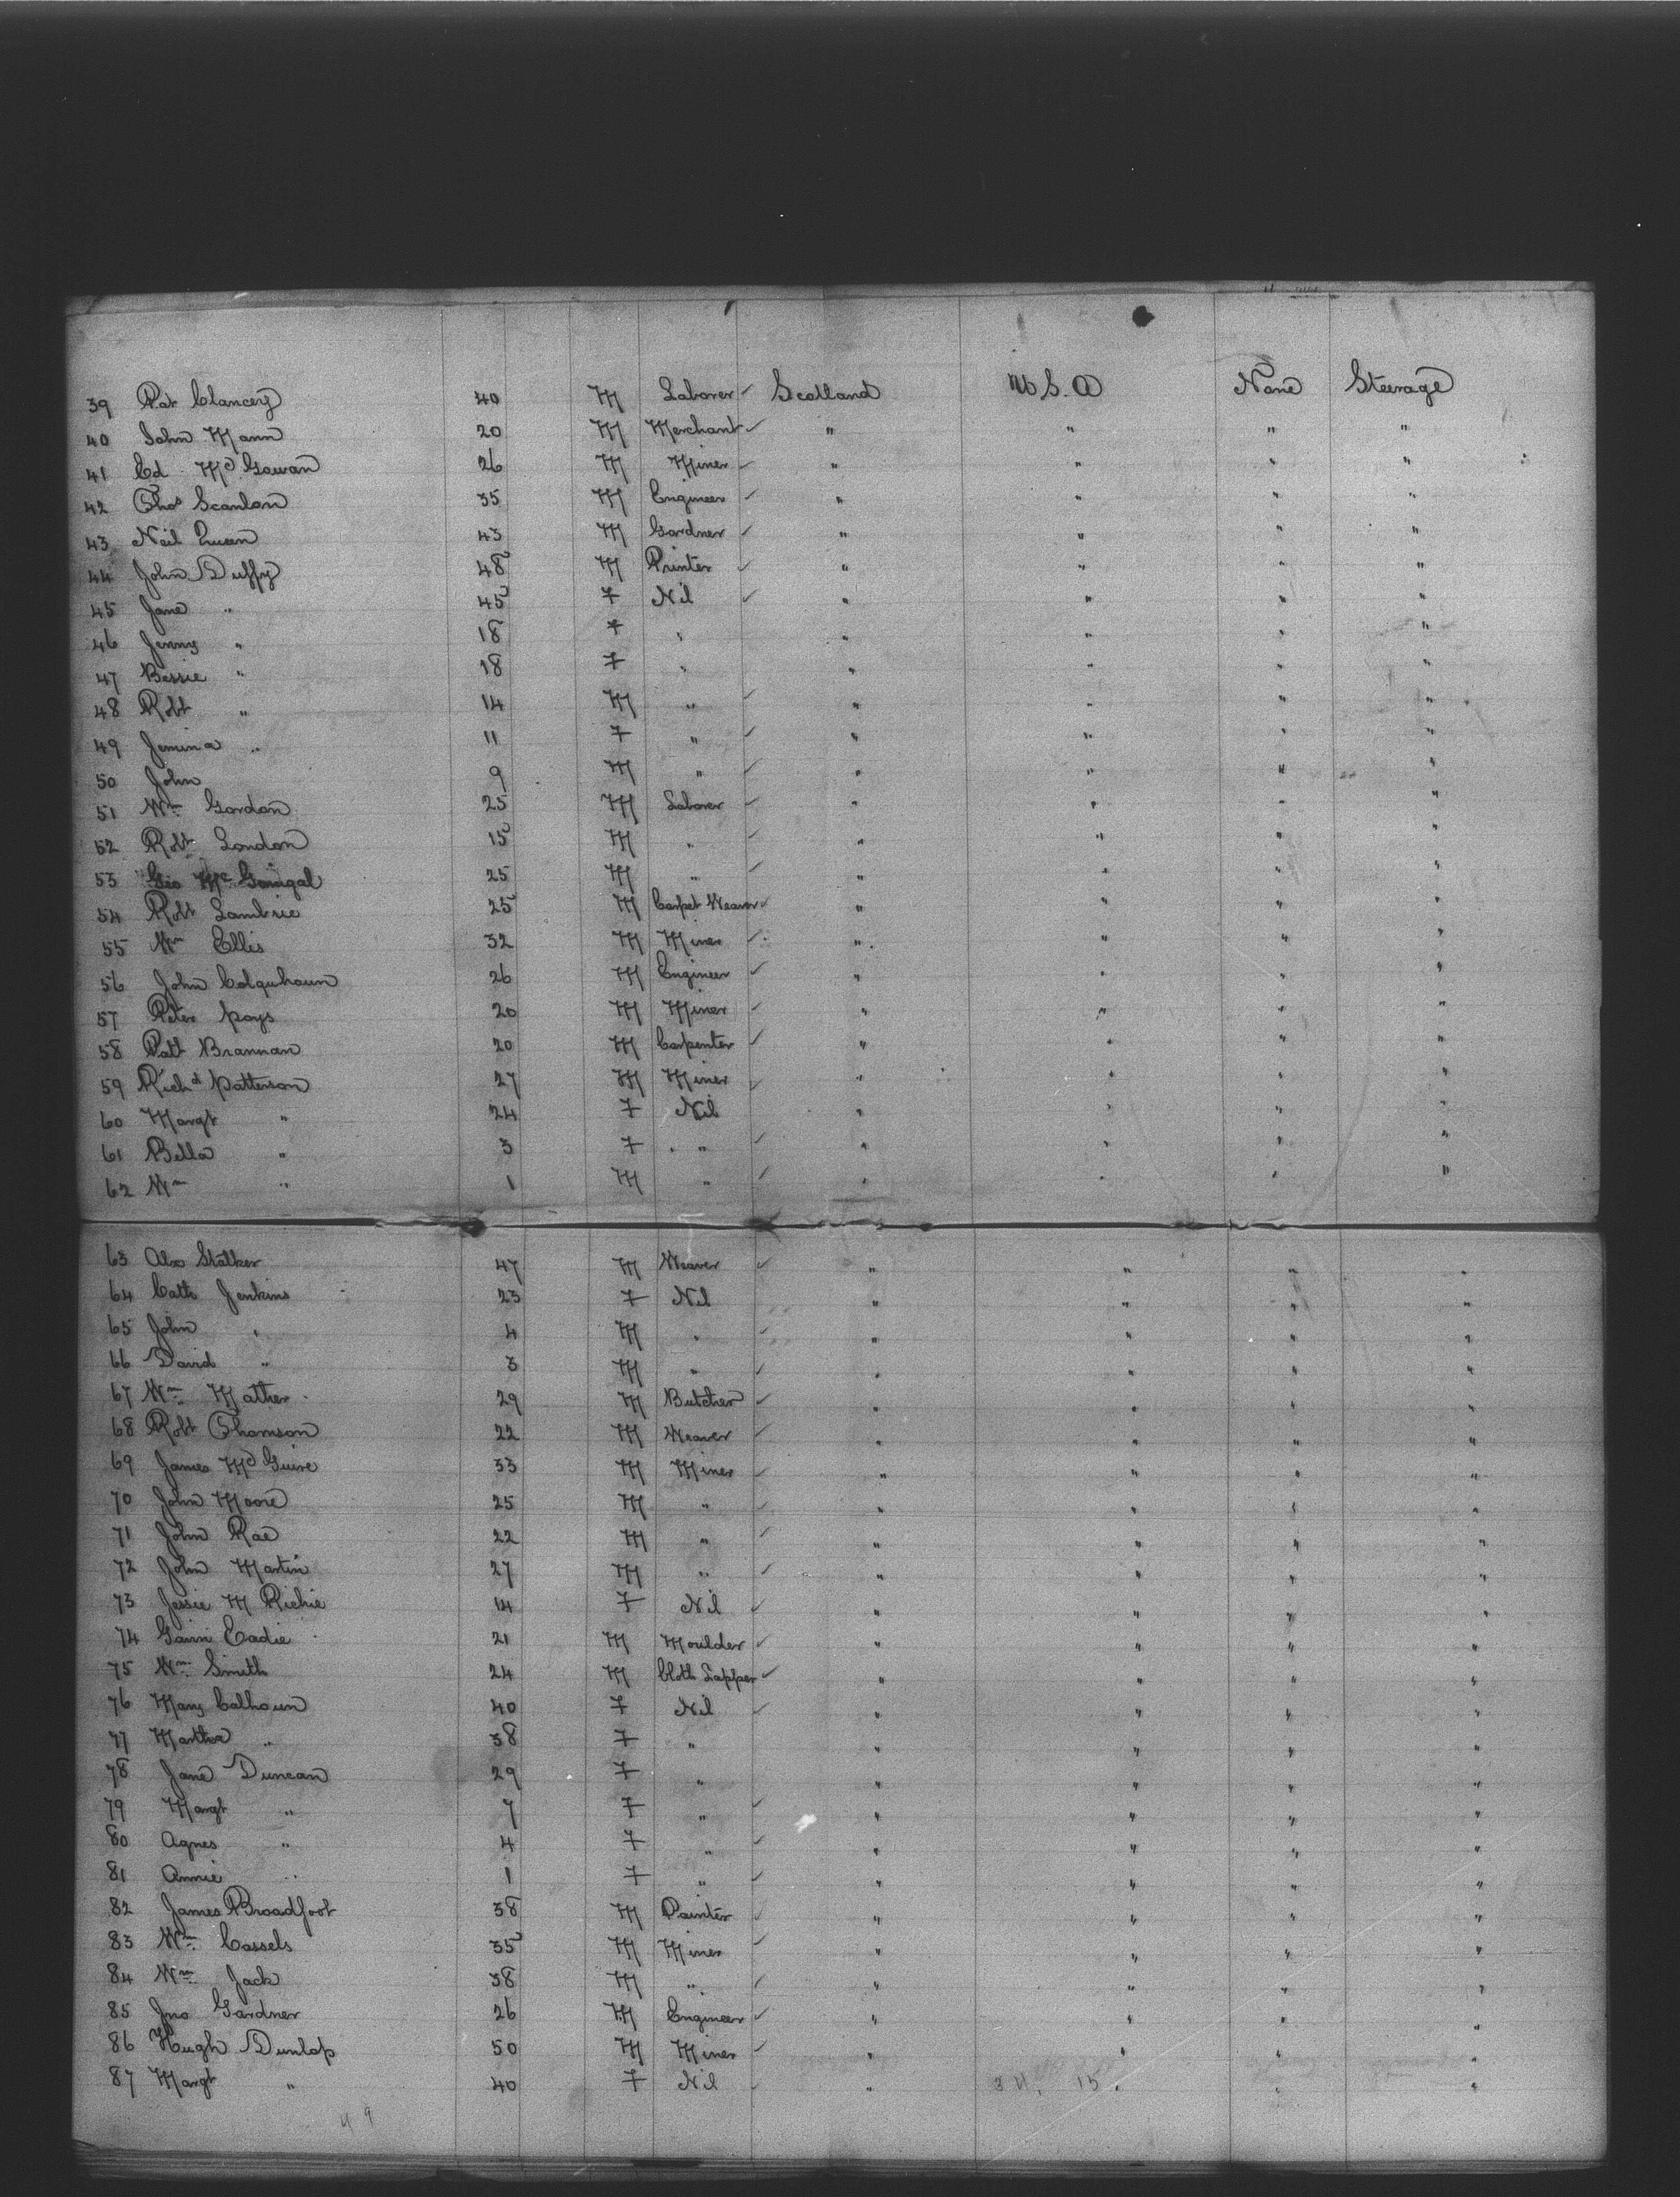 39 Pat Clancey 40 M Laborer ✓ Scotland U.S.A None Steerage
40 John Mann 20 M Merchant ✓ " " " "
41 Ed Mc Gowan 26 M Miner ✓ " " " "
42 Thos Scanlon 35 M Engineer ✓ " " " "
43 Neil 43 M Gardner ✓ " " " "
44 John Duffy 48 M Printer ✓ " " " "
45 Jane " 45 F Nil ✓ " " " "
46 Jenny " 18 F " " " " "
47 Bessie " 18 F " " " " "
48 Robt " 14 M " ✓ " " " "
49 Jemina " 11 F " ✓ " " " "
50 John 9 M " ✓ " " " "
51 Wm Gordon 25 M Laborer ✓ " " " "
52 Robt London 15 M " ✓ " " " "
53 Geo Mc Gonigal 25 M " ✓ " " " "
54 Robt Lambrie 25 M Carpet Weaver ✓ " " " "
55 Wm Ellis 32 M Miner ✓ " " " "
56 John Colquhoun 26 M Engineer ✓ " " " "
57 Peter Pays 20 M Miner ✓ " " " "
58 Patt Brannan 20 M Carpenter ✓ " " " "
59 Richd Patterson 27 M Miner ✓ " " " "
60 Margt " 24 F Nil " " " "
61 Bella " 3 F " ✓ " " " "
62 Wm " 1 M " ✓ " " " "
63 Alex Stalker 47 M Weaver ✓ " " " "
64 Cath Jenkins 23 F Nil " " " "
65 John " 4 M " ✓ " " " "
66 David " 3 M " ✓ " " " "
67 Wm Mather 29 M Butcher ✓ " " " "
68 Robt Thomson 22 M Weaver ✓ " " " "
69 James Mc Guire 33 M Miner ✓ " " " "
70 John Moore 25 M " ✓ " " " "
71 John Rae 22 M " ✓ " " " "
72 John Martin 27 M " ✓ " " " "
73 Jessie M Richie 14 F Nil ✓ " " " "
74 Eadie 21 M Moulder ✓ " " " "
75 Wm Smith 24 M Cloth Lapper ✓ " " " "
76 Mary Calhoun 40 F Nil ✓ " " " "
77 Martha " 38 F " " " " "
78 Jane Duncan 29 F " " " " "
79 Margt " 7 F " ✓ " " " "
80 Agnes " 4 F " ✓ " " " "
81 Annie " 1 F " ✓ " " " "
82 James Broadfoot 38 M Painter ✓ " " " "
83 Wm Cassels 35 M Miner ✓ " " " "
84 Wm Jack 38 M " ✓ " " " "
85 Jno Gardner 26 M Engineer ✓ " " " "
86 Hugh Dunlop 50 M Miner ✓ " " " "
87 Margt " 40 F Nil ✓ " " " "
34. 15.
49